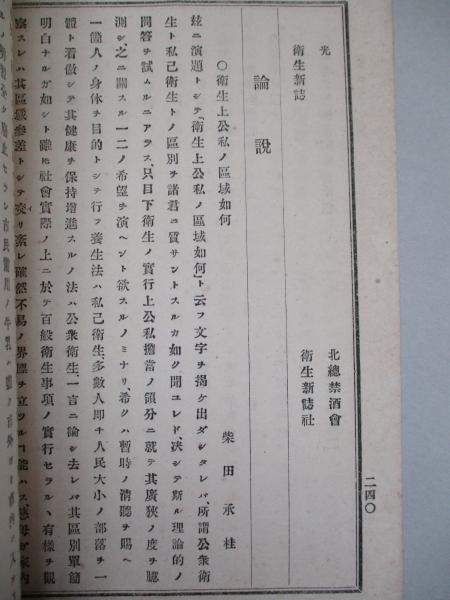 光
衛生新誌
北總禁酒會
衛生新誌社
二四〇
論說
〇衛生上公私ノ區域如何
柴田承桂
玆ニ演題トシテ「衛生上公私ノ區域如何」ト云フ文字ヲ揭ケ出ダシタレバ、所謂公衆衛
生ト私己衛生トノ區別ヲ諸君ニ質サントスルカ如ク聞ユレド、決シテ斯ル理論的ノ
問答ヲ試ムルニアラス、只目下衛生ノ實行上公私擔當ノ領分ニ就テ其廣狹ノ度ヲ臆
測シ、之ニ關スル一二ノ希望ヲ演ヘント欲スルノミナリ、希クハ暫時ノ淸聽ヲ賜ヘ
一箇人ノ身体ヲ目的トシテ行フ養生法ハ私己衛生、多數人卽チ人民大小ノ部落ヲ一
體ト看做シテ其健康ヲ保持增進スルノ法ハ公衆衛生、一言ニ論シ去レバ其區別單簡
明白ナルガ如シト雖𪜈社會實際ノ上ニ於テ百般衛生事項ノ實行セラルヽ有樣ヲ觀
察スレハ其區域參差トシテ交リ紊レ確然不易ノ界標ヲ立ツル